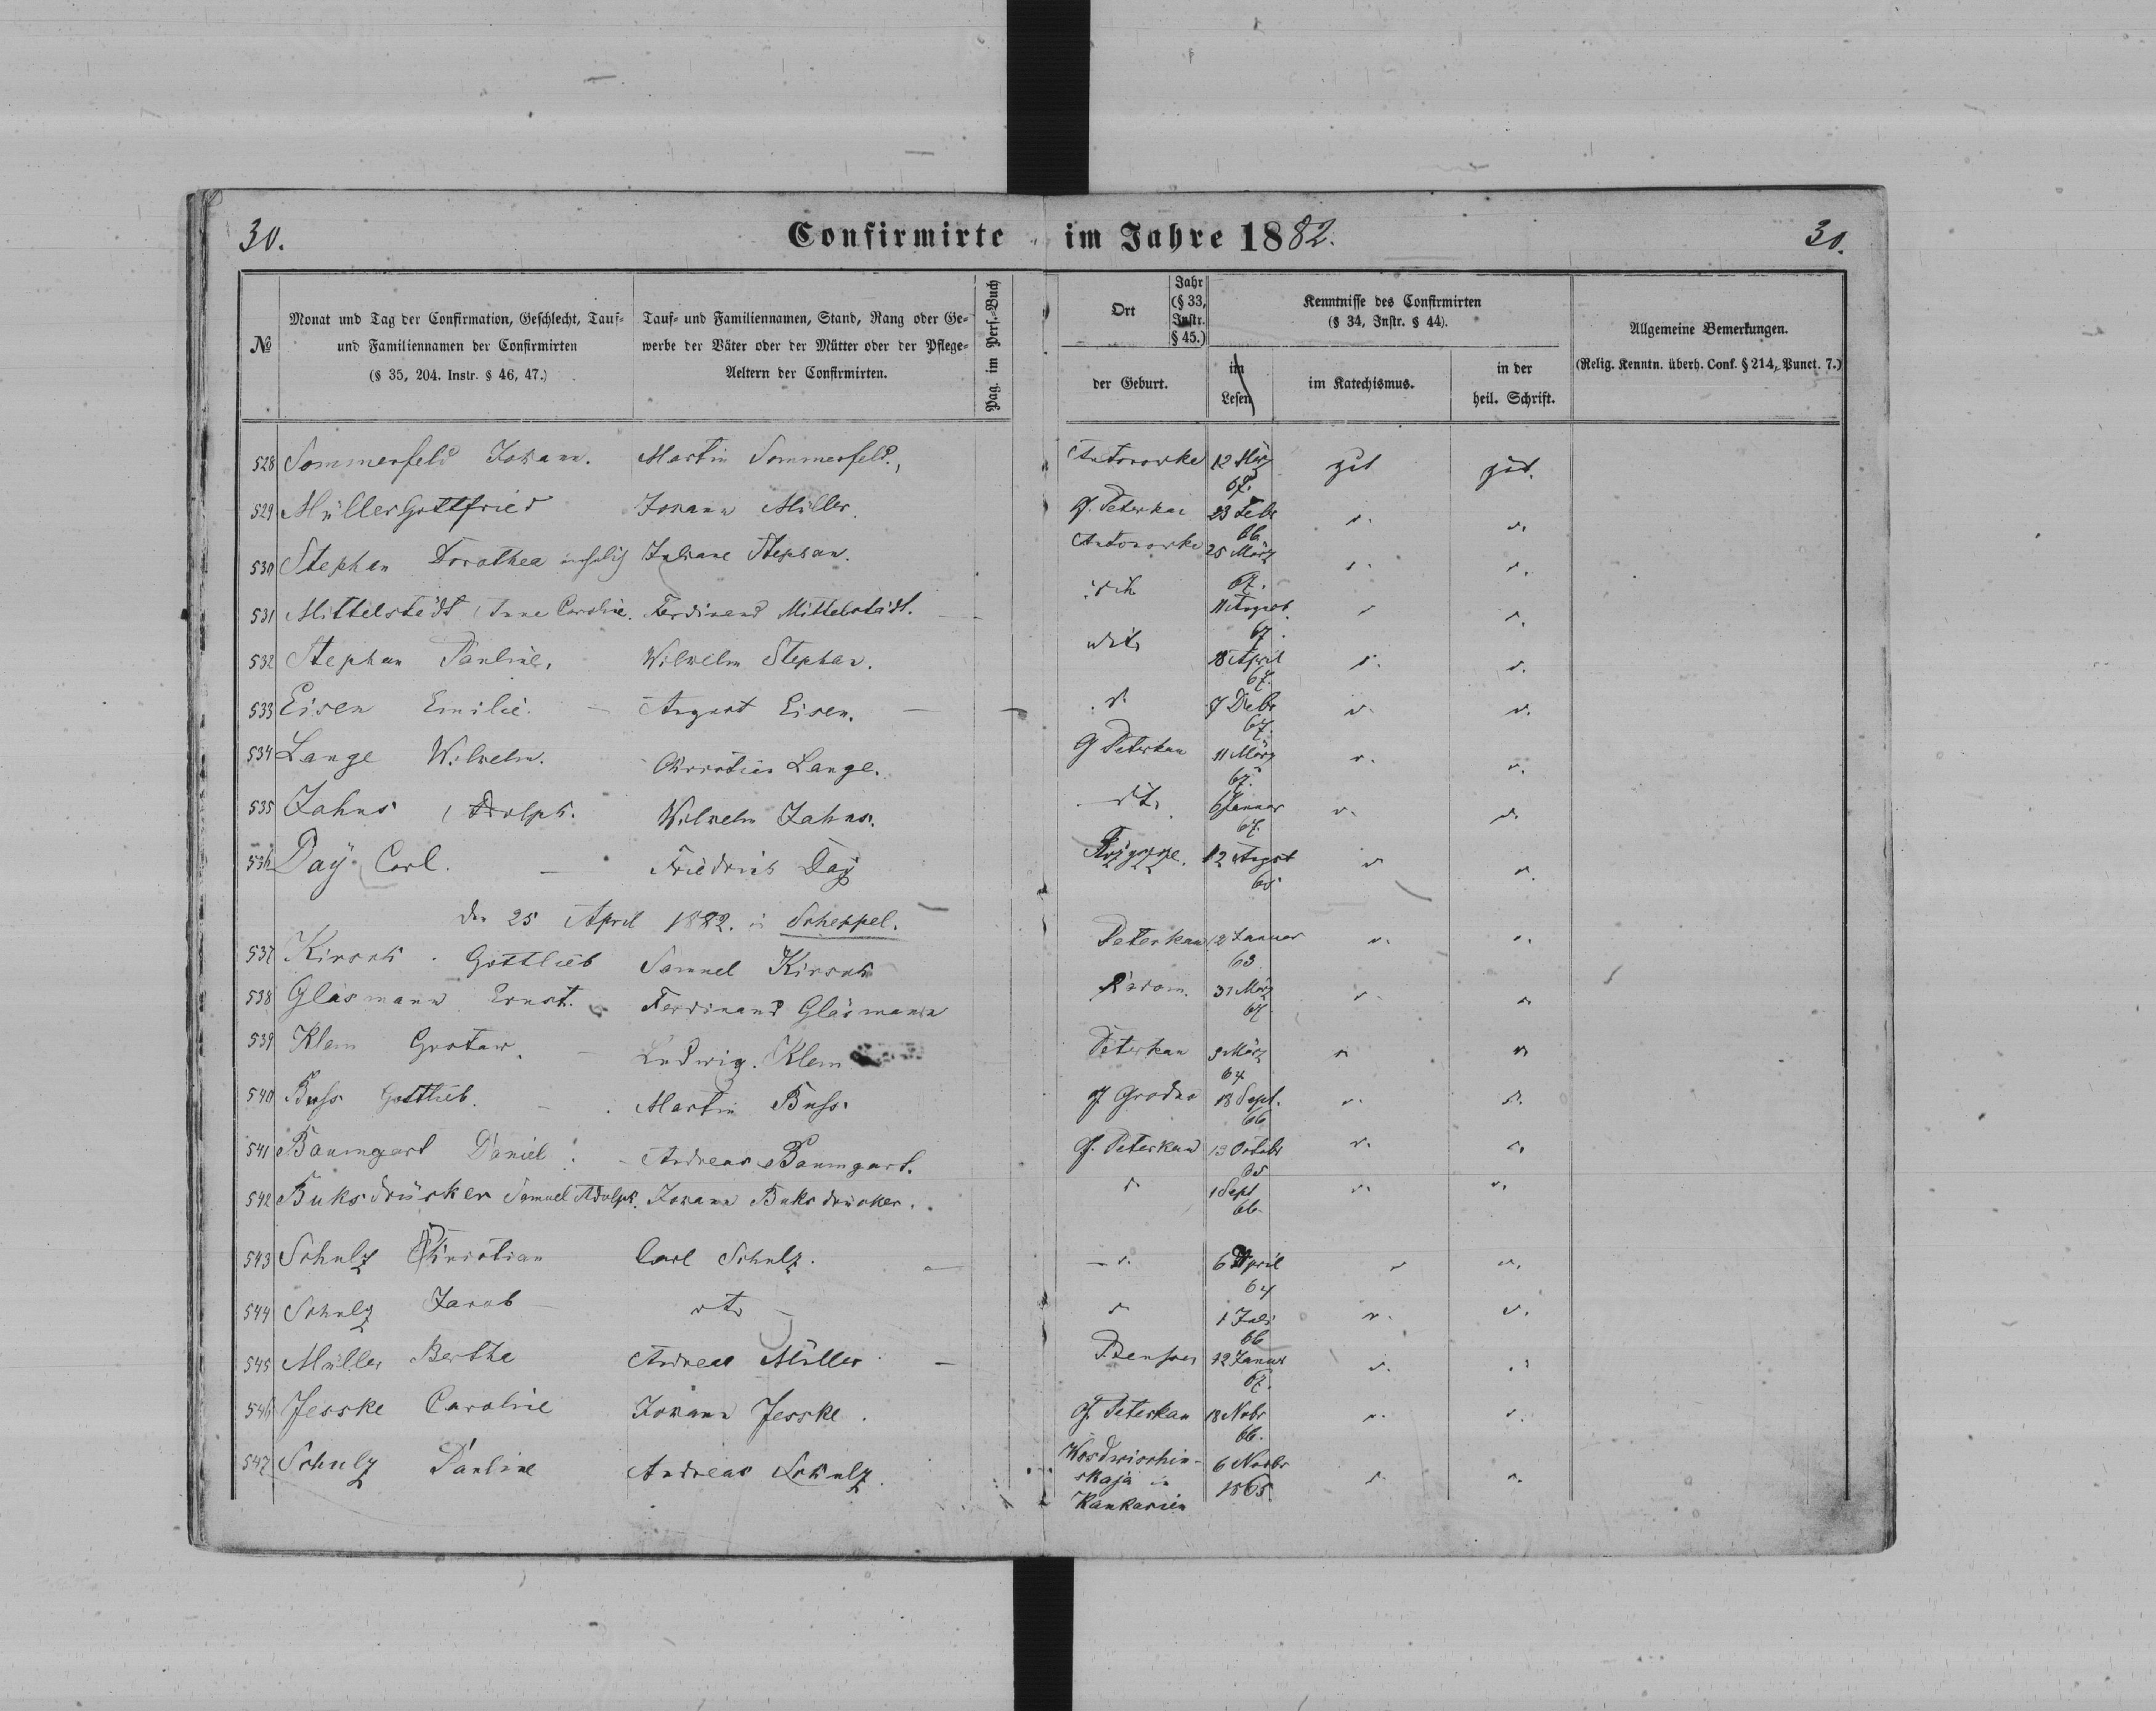 30.
Confirmirte im Jahre 1882.
30.
№
Monat und Tag der Confirmation, Geschlecht, Tauf-
und Familiennamen der Confirmirten
(§ 35, 204. Instr. § 46, 47.)
Tauf- und Familiennamen, Stand, Rang oder Ge-
werbe der Väter oder der Mütter oder der Pflege-
Aeltern der Confirmirten.
Pag. im Pers.-Buch
Ort
Jahr
(§ 33,
Instr.
§ 45.)
der Geburt.
Kenntnisse des Confirmirten
(§ 34, Instr. § 44).
im
Lesen
im Katechismus.
in der
heil. Schrift.
Allgemeine Bemerkungen.
(Relig. Kenntn. überh. Conf. § 214, Punct. 7.)
528 Sommerfeld Johann. Martin Sommerfeld. Antonowke 12 März gut gut.
67.
529 Müller Gottfried Johann Müller. 23 Febr
66
530 Stephan Dorothea Juliane Stephan. Antonowke 25 März
67.
531 Mittelstädt Anne Caroline. Ferdinand Mittelstädt. 11 August
67.
532 Stephan Pauline. Wilhelm Stephan. 18 April
67.
533 Eisen Emilie. August Eisen. 7 Debr
67.
534 Lange Wilhelm. Christian Lange. G Peterkau 11 März
67.
535 Jahns Adolph. Wilhelm Jahns. 6 Januar
67.
536 Day Carl. Friedrich Day 12 August
65
den 25 April 1882. in Scheppel.
537 Kirsch Gottlieb Samuel Kirsch Peterkau 12 Januar
63
538 Gläsmann Ernst. Ferdinand Gläsmann Radom. 31 März
67
539 Klem Gustaw. Ludwig Klem Peterkau 9 März
64
540 Buss Gottlieb. Martin Buss. G Grodno 18 Sept.
66
541 Baumgart Daniel Andreas Baumgart. G. Peterkau 13 Octobr
65
542 Buksdrücker Samuel Adolph. Johann Buksdrücker. 1 Sept
66
543 Schulz Christian Carl Schulz. 6 April
64
544 Schulz Jacob dto 1 Juli
66
545 Müller Berthe Andreas Müller 12 Januar
67.
546 Jesske Caroline Johann Jesske. G. Peterkau 18 Nobr
66.
547 Schulz Pauline Andreas Schulz. Wosdwischin- 6 Novbr
skaja in 1865.
Kaukasien